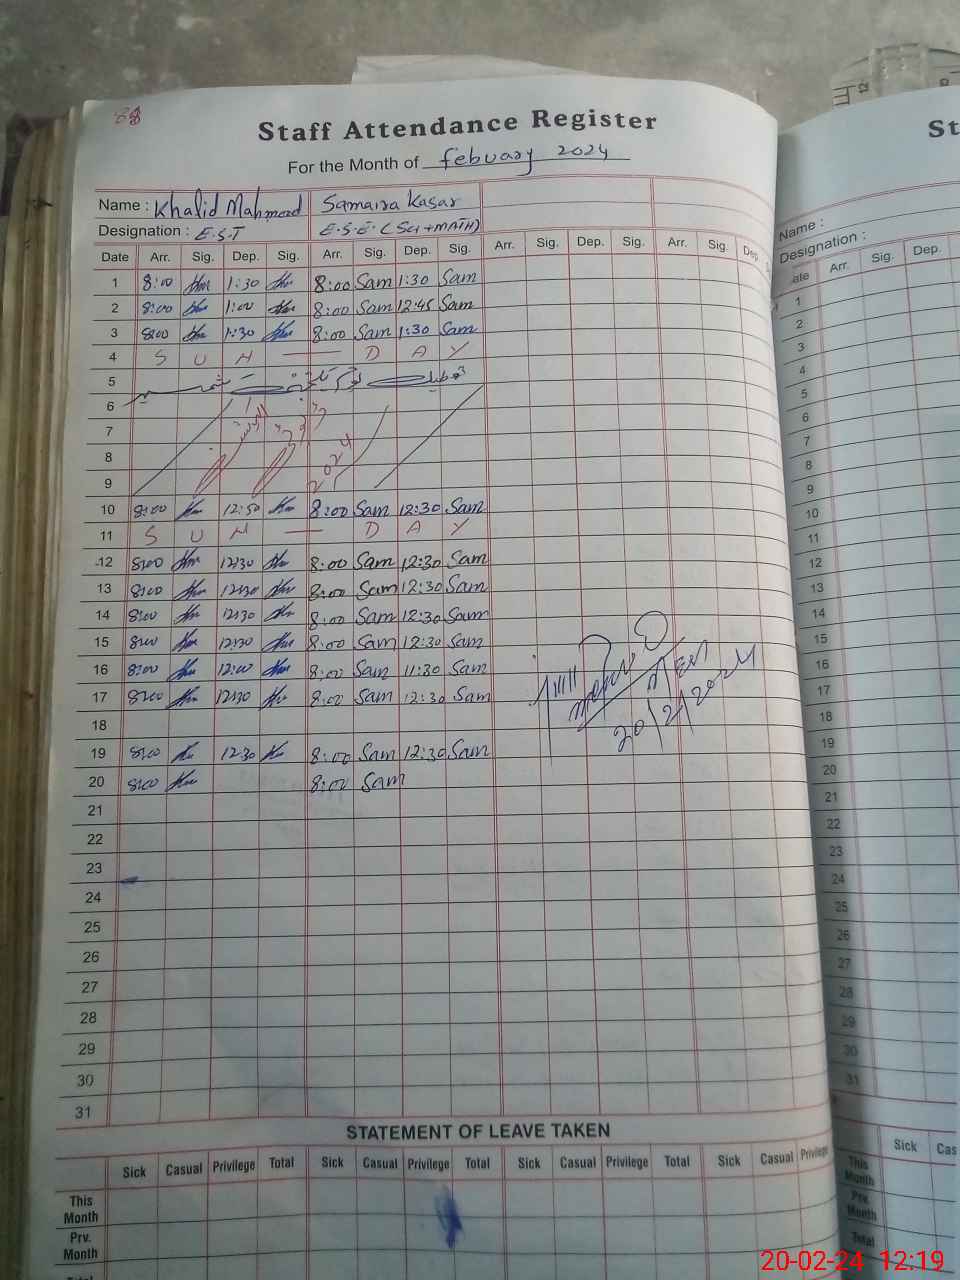 88
Staff Attendance Register
For the Month of febuary 2024
Name : Khalid Mahmood Samaira Kasar
Designation : E.S.T E.S.E. (Sci+MATH)
Date Arr. Sig. Dep. Sig. Arr. Sig. Dep. Sig. Arr. Sig. Dep. Sig. Arr. Sig. Dep.
1 8:00 1:30 8:00 Sam 1:30 Sam
2 8:00 1:00 8:00 Sam 12:45 Sam
3 8:00 1:30 8:00 Sam 1:30 Sam
4 S U N — D A Y
5
6
7
8
9
2024
10 8:00 12:50 8:00 Sam 12:30 Sam
11 S U N — D A Y
12 8:00 12:30 8:00 Sam 12:30 Sam
13 8:00 12:30 8:00 Sam 12:30 Sam
14 8:00 12:30 8:00 Sam 12:30 Sam
15 8:00 12:30 8:00 Sam 12:30 Sam
16 8:00 12:00 8:00 Sam 11:30 Sam
17 8:00 12:30 8:00 Sam 12:30 Sam
18
19 8:00 12:30 8:00 Sam 12:30 Sam
20 8:00 8:00 Sam
20/2/2024
21
22
23
24
25
26
27
28
29
30
31
STATEMENT OF LEAVE TAKEN
Sick Casual Privilege Total Sick Casual Privilege Total Sick Casual Privilege Total Sick Casual Privilege
This Month
Prv. Month
Total
St
Name :
Designation :
Arr. Sig. Dep.
1
2
3
4
5
6
7
8
9
10
11
12
13
14
15
16
17
18
19
20
21
22
23
24
25
26
27
28
29
30
31
Sick Cas
This Month
Prv. Month
Total
20-02-24 12:19